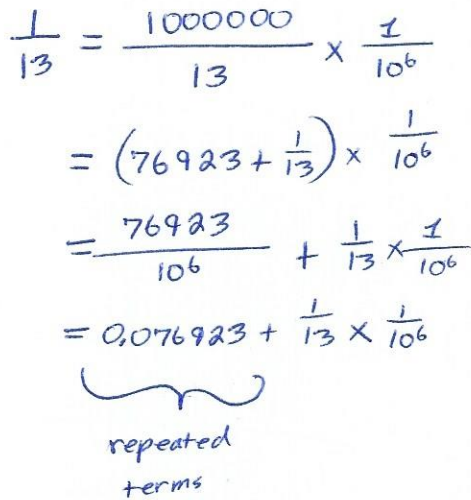 1/13 = 1000000/13 × 1/10⁶
= (76923 + 1/13) × 1/10⁶
= 76923/10⁶ + 1/13 × 1/10⁶
= 0,076923 + 1/13 × 1/10⁶
repeated
terms